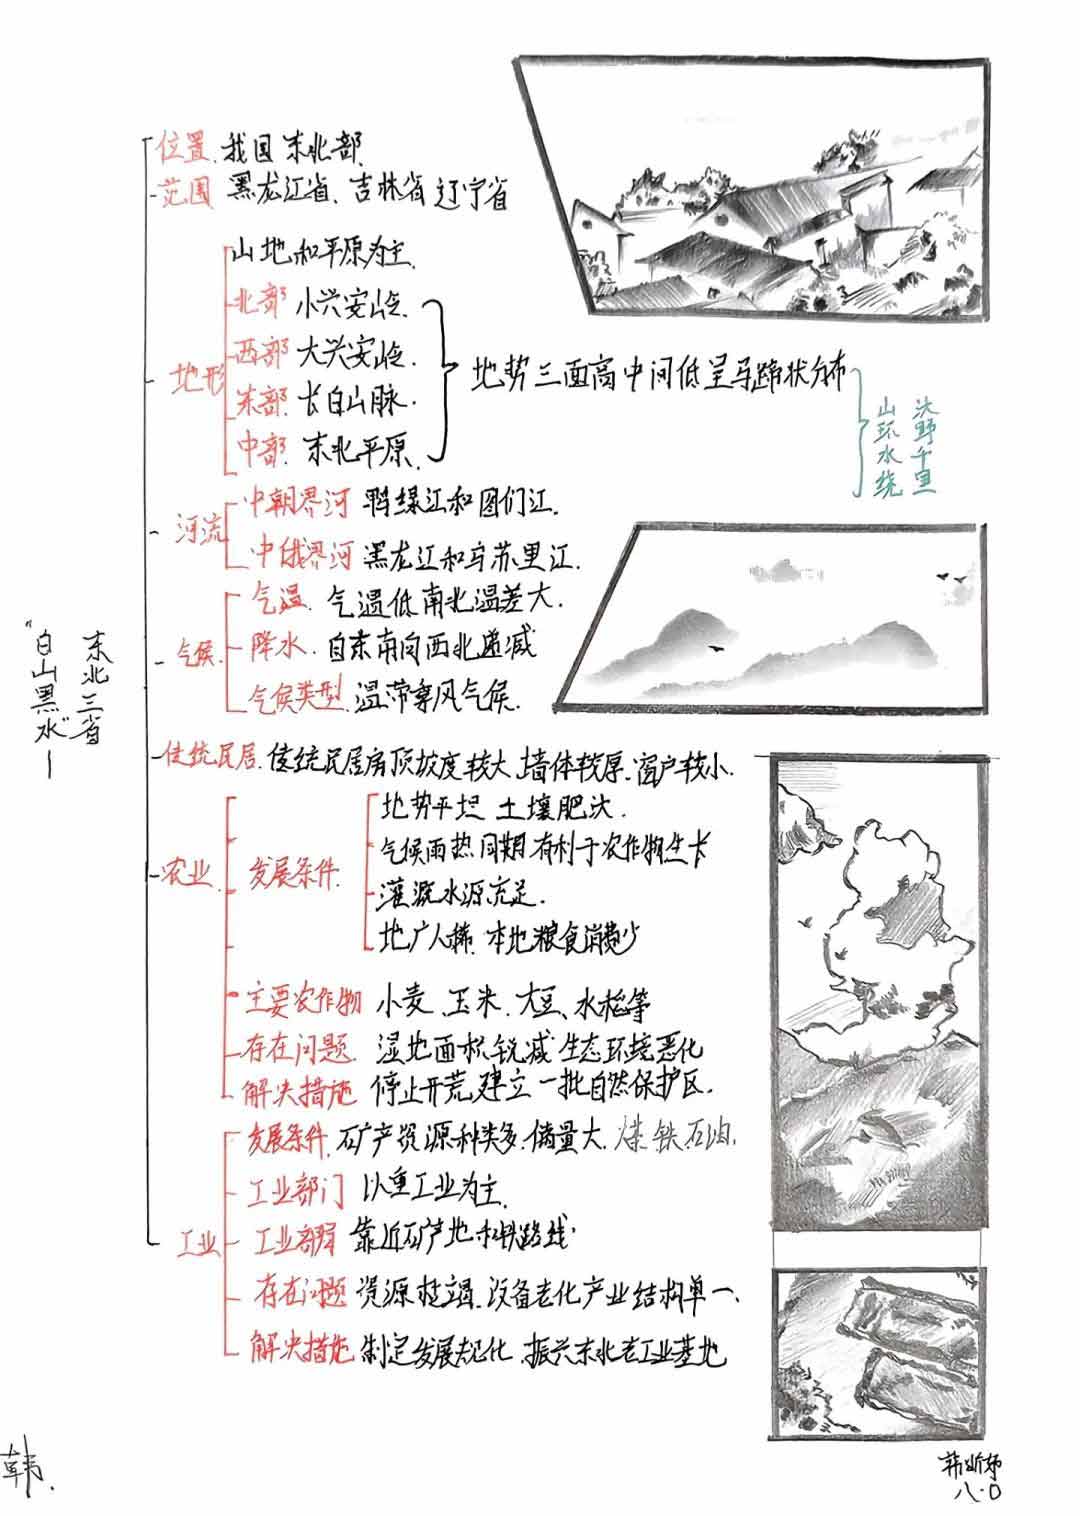 位置 我国东北部
范围 黑龙江省、吉林省 辽宁省
地形
山地和平原为主.
北部 小兴安岭.
西部 大兴安岭.
东部 长白山脉.
中部 东北平原.
地势三面高中间低呈马蹄状分布
山环水绕
沃野千里
河流
中朝界河 鸭绿江和图们江.
中俄界河 黑龙江和乌苏里江.
气候
气温 气温低南北温差大.
降水 自东南向西北递减
气候类型 温带季风气候.
东北三省
"白山黑水"—
传统民居 传统民居房顶坡度较大、墙体较厚·窗户较小.
农业
发展条件
地势平坦 土壤肥沃.
气候雨热同期有利于农作物生长
灌溉水源充足.
地广人稀 本地粮食消费少
主要农作物 小麦、玉米、大豆、水稻等
存在问题 湿地面积锐减 生态环境恶化
解决措施 停止开荒,建立一批自然保护区.
工业
发展条件 矿产资源种类多 储量大、煤 铁 石油.
工业部门 以重工业为主.
工业 靠近矿产地和铁路线
存在问题 资源枯竭、设备老化 产业结构单一.
解决措施 制定发展规化 振兴东北老工业基地
韩.
八.